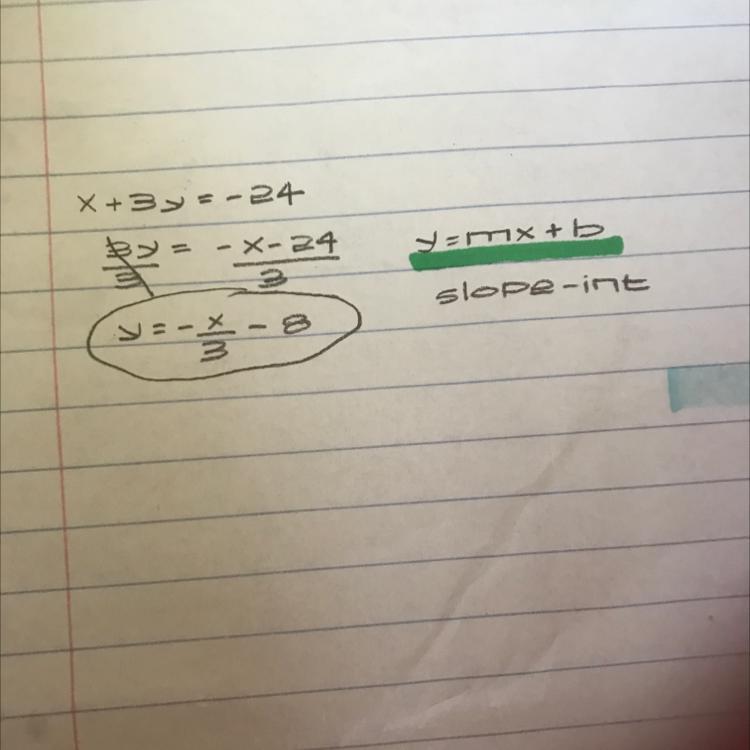 x + 3y = -24
3y/3 = -x-24/3
y = -x/3 - 8
y = mx + b
slope-int